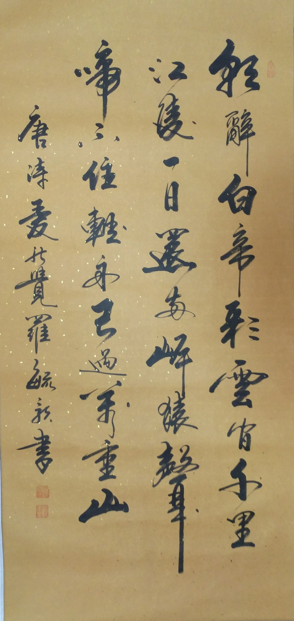 朝辭白帝彩雲間千里
江陵一日還兩岸猿聲
啼不住輕舟已過萬重山
唐詩愛新覺羅毓書